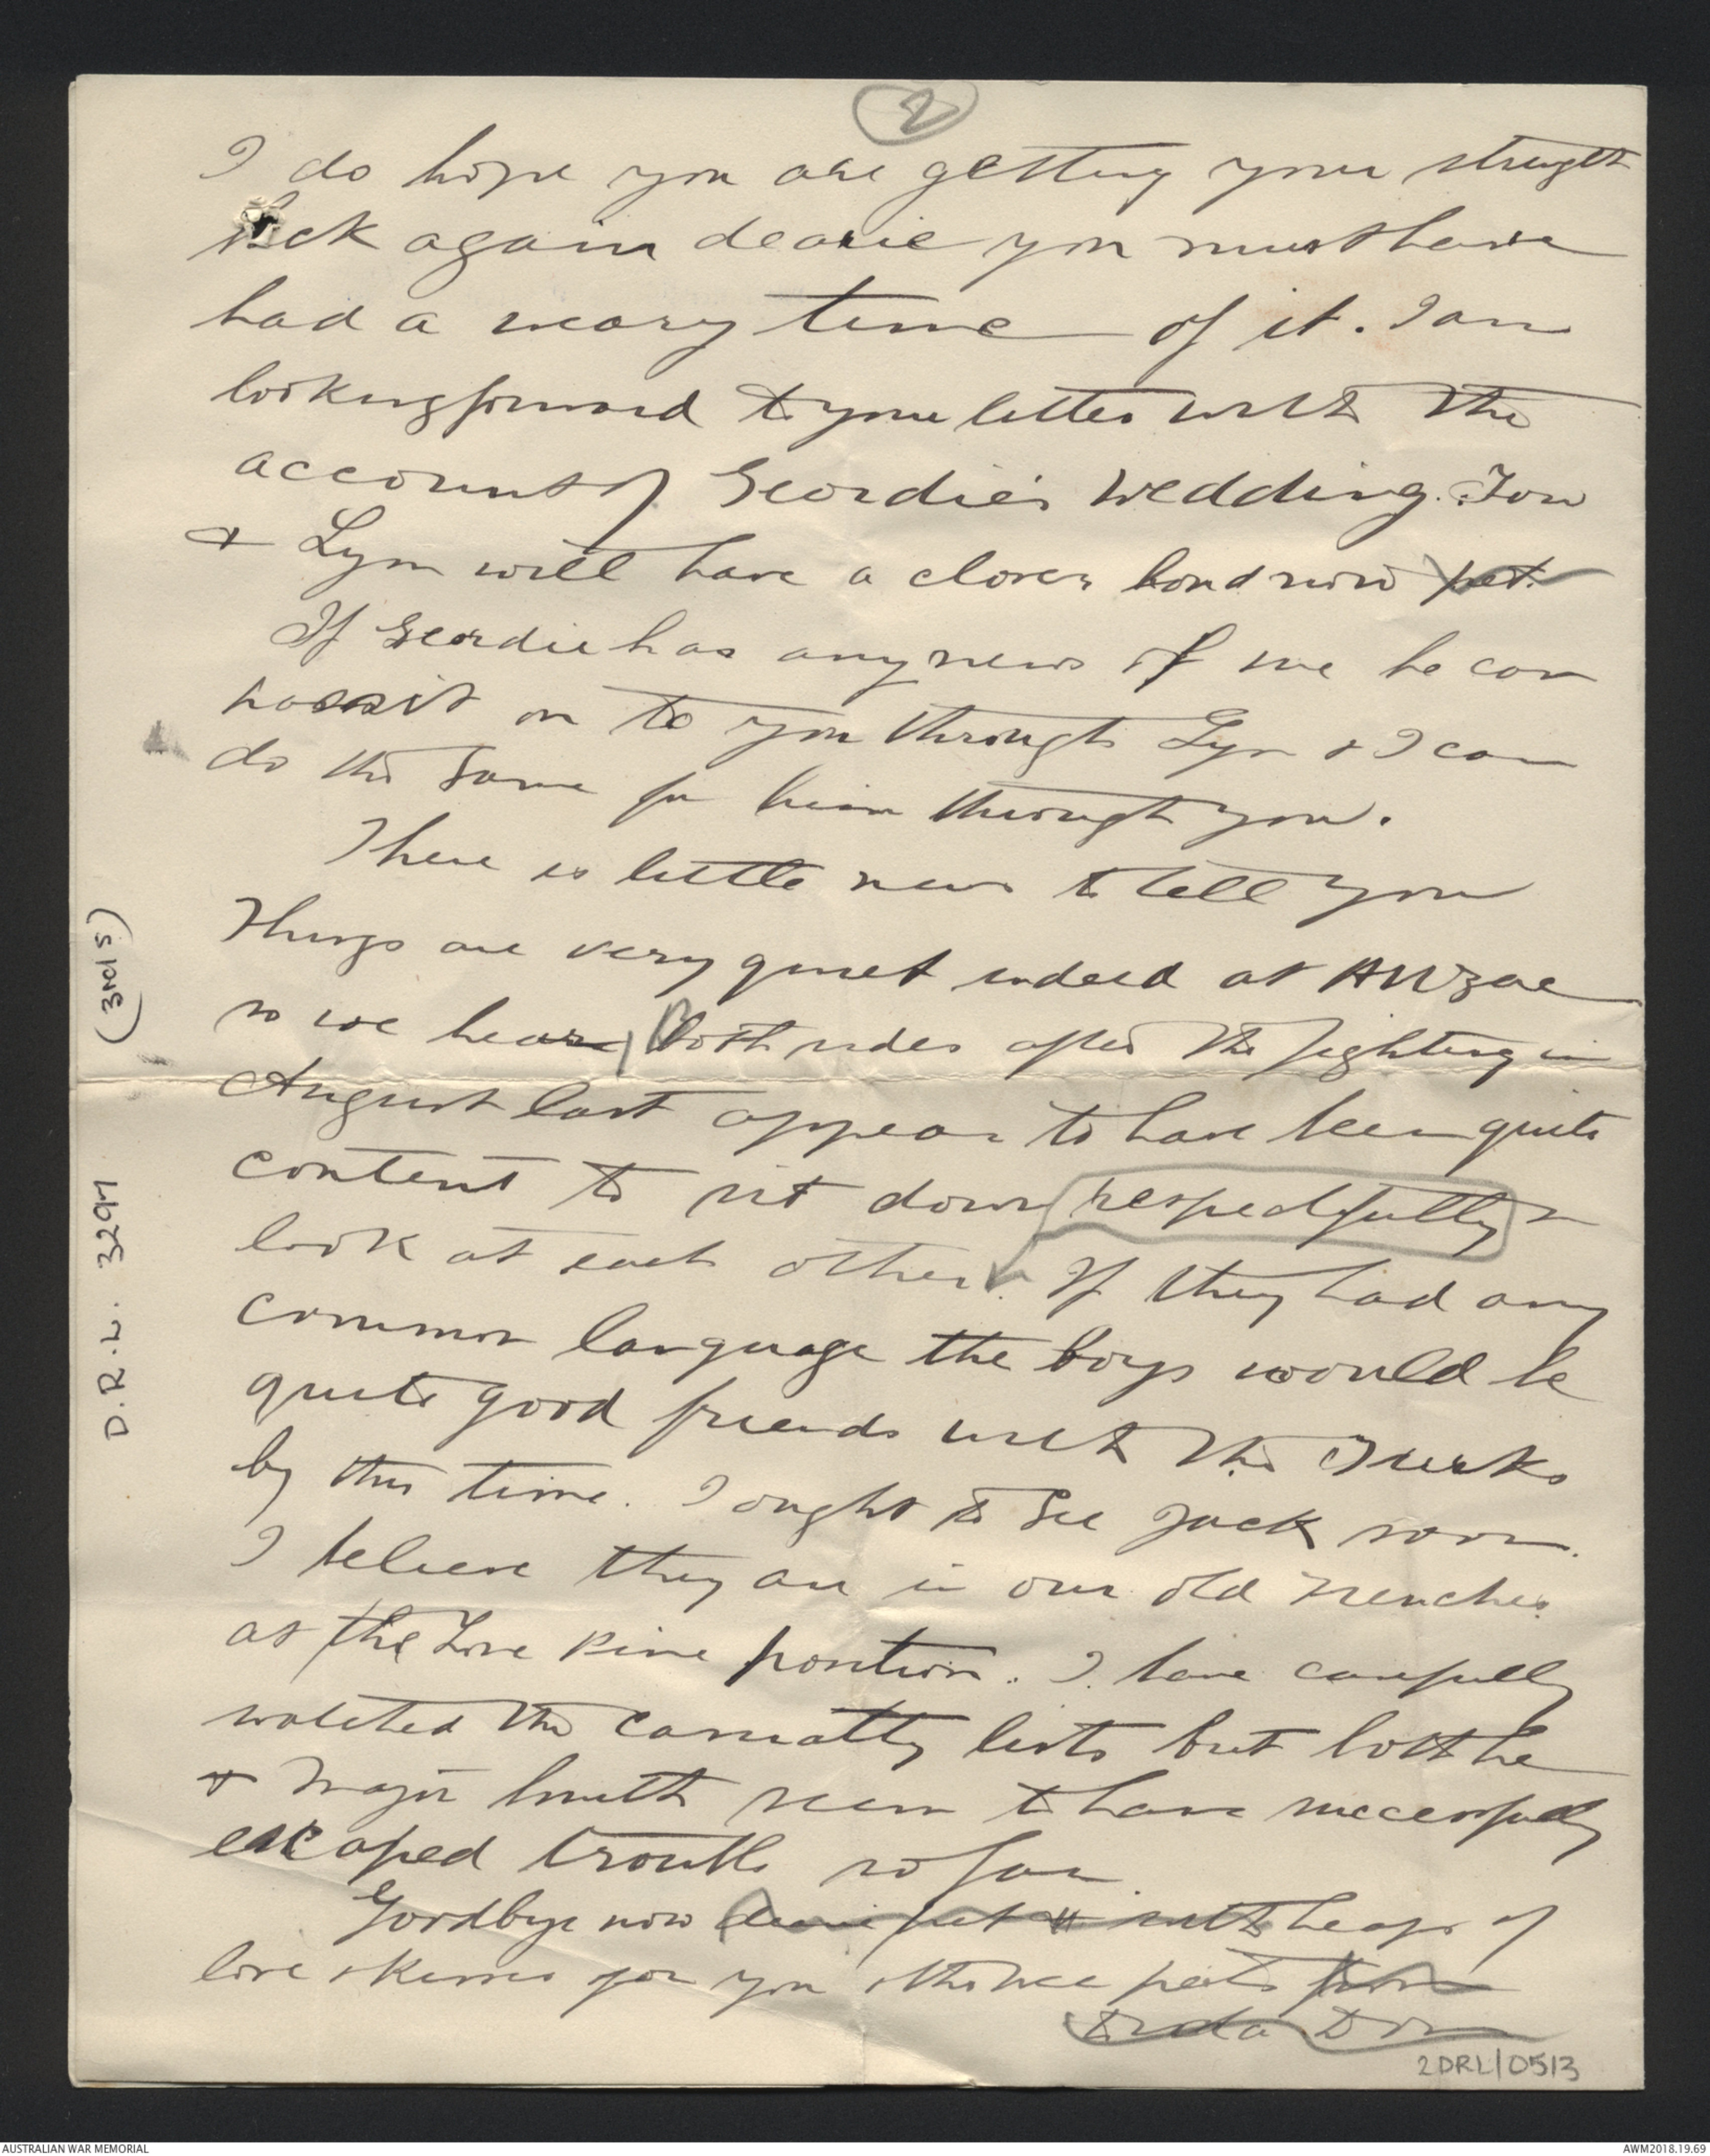 2
I do hope you are getting your strength
back again dearie you must have
had a weary time of it. I am
looking forward to your letter with the
account of Geordie's wedding. You
& Lyn will have a closer bond now pet.
If Geordie has any news of me he can
pass it on to you through Lyn & I can
do the same for him through you.
There is little news to tell you
Things are very quiet indeed at ANZAC
so we hear, Both sides after the fighting in
August last appear to have been quite
content to sit down respectfully &
look at each other. If they had any
common language the boys would be
quite good friends with the Turks
by this time. I ought to see Jack soon.
I believe they are in our old trenches
at the Lone Pine position. I have carefully
watched the casualty lists but both he
& Major Smith seem to have successfully
escaped trouble so far.
Goodbye now dearie pet with heaps of
love & kisses for you & the wee pets from
(3rd 5)
D.R.L. 3297
2DRL/0513
AUSTRALIAN WAR MEMORIAL
AWM2018.19.69